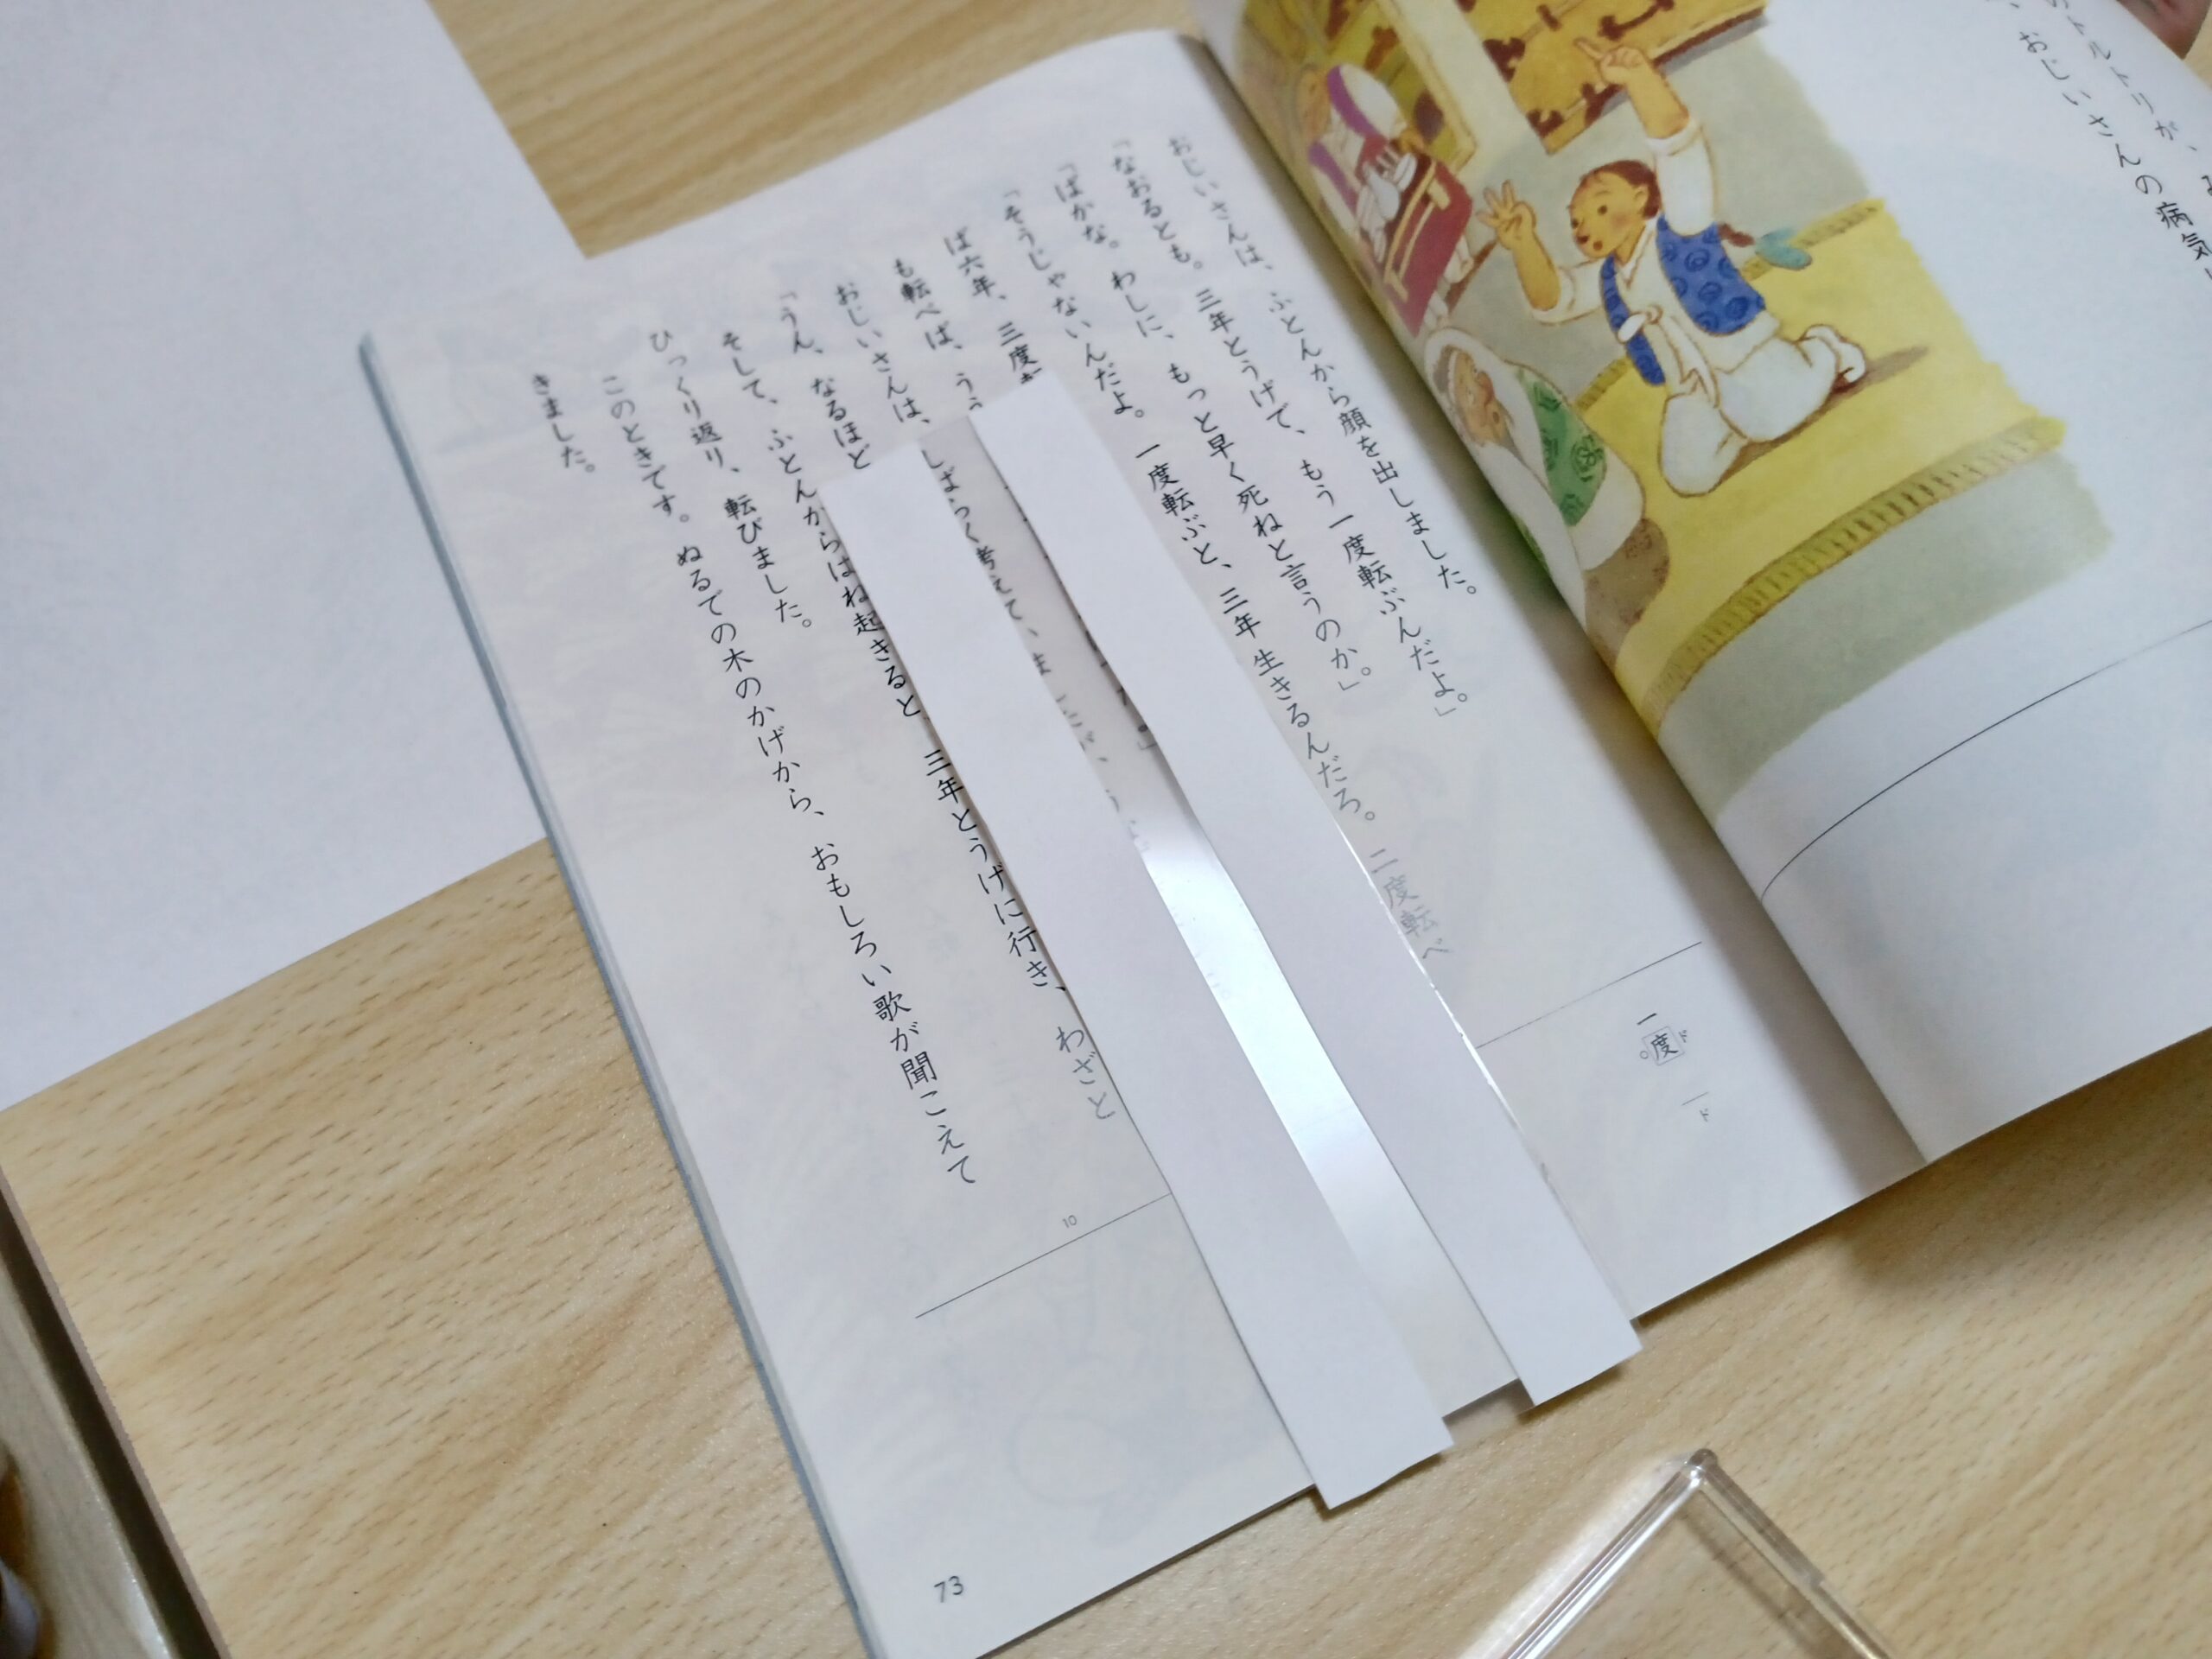 のトルトリが、
おじいさんの病気
おじいさんは、ふとんから顔を出しました。
「なおるとも。三年とうげで、もう一度転ぶんだよ。」
「ばかな。わしに、もっと早く死ねと言うのか。」
「そうじゃないんだよ。一度転ぶと、三年生きるんだろ。二度転べ
ば六年、三度
も転べば、うう
おじいさんは、しばらく考えて、
「うん、なるほど
そして、ふとんからはね起きると、三年とうげに行き、わざと
ひっくり返り、転びました。
このときです。ぬるでの木のかげから、おもしろい歌が聞こえて
きました。
一度
ド
一
ド
10
73